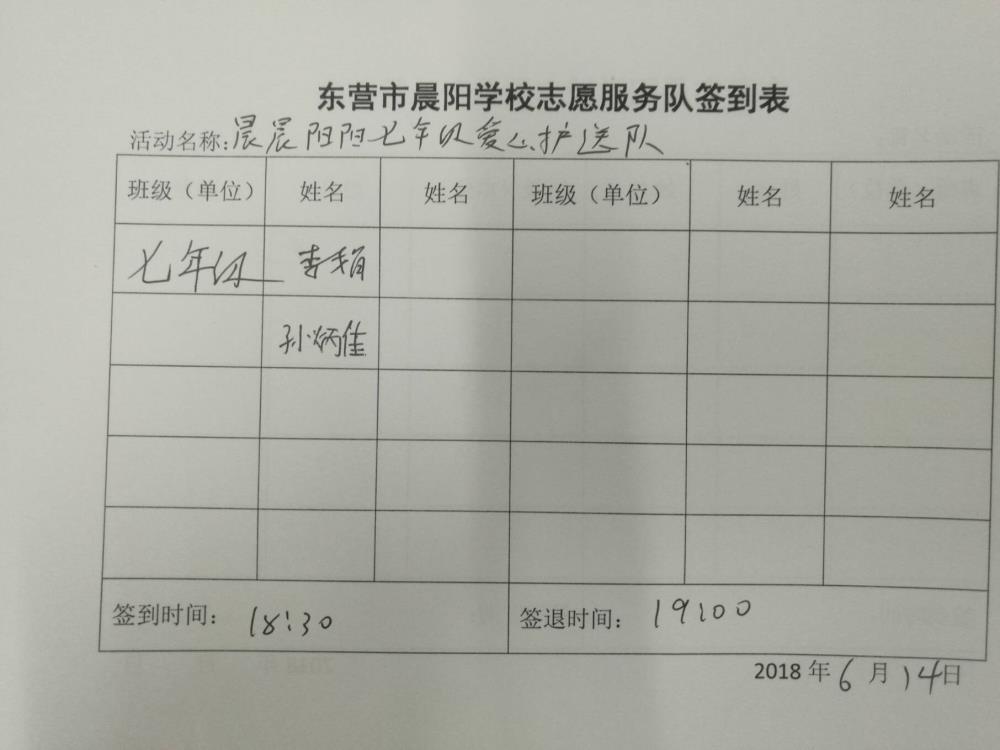 东营市晨阳学校志愿服务队签到表
活动名称:晨晨阳阳七年级爱心护送队
班级（单位） 姓名 姓名 班级（单位） 姓名 姓名
七年级 李娟
孙炳佳
签到时间： 18:30 签退时间： 19:00
2018年6月14日